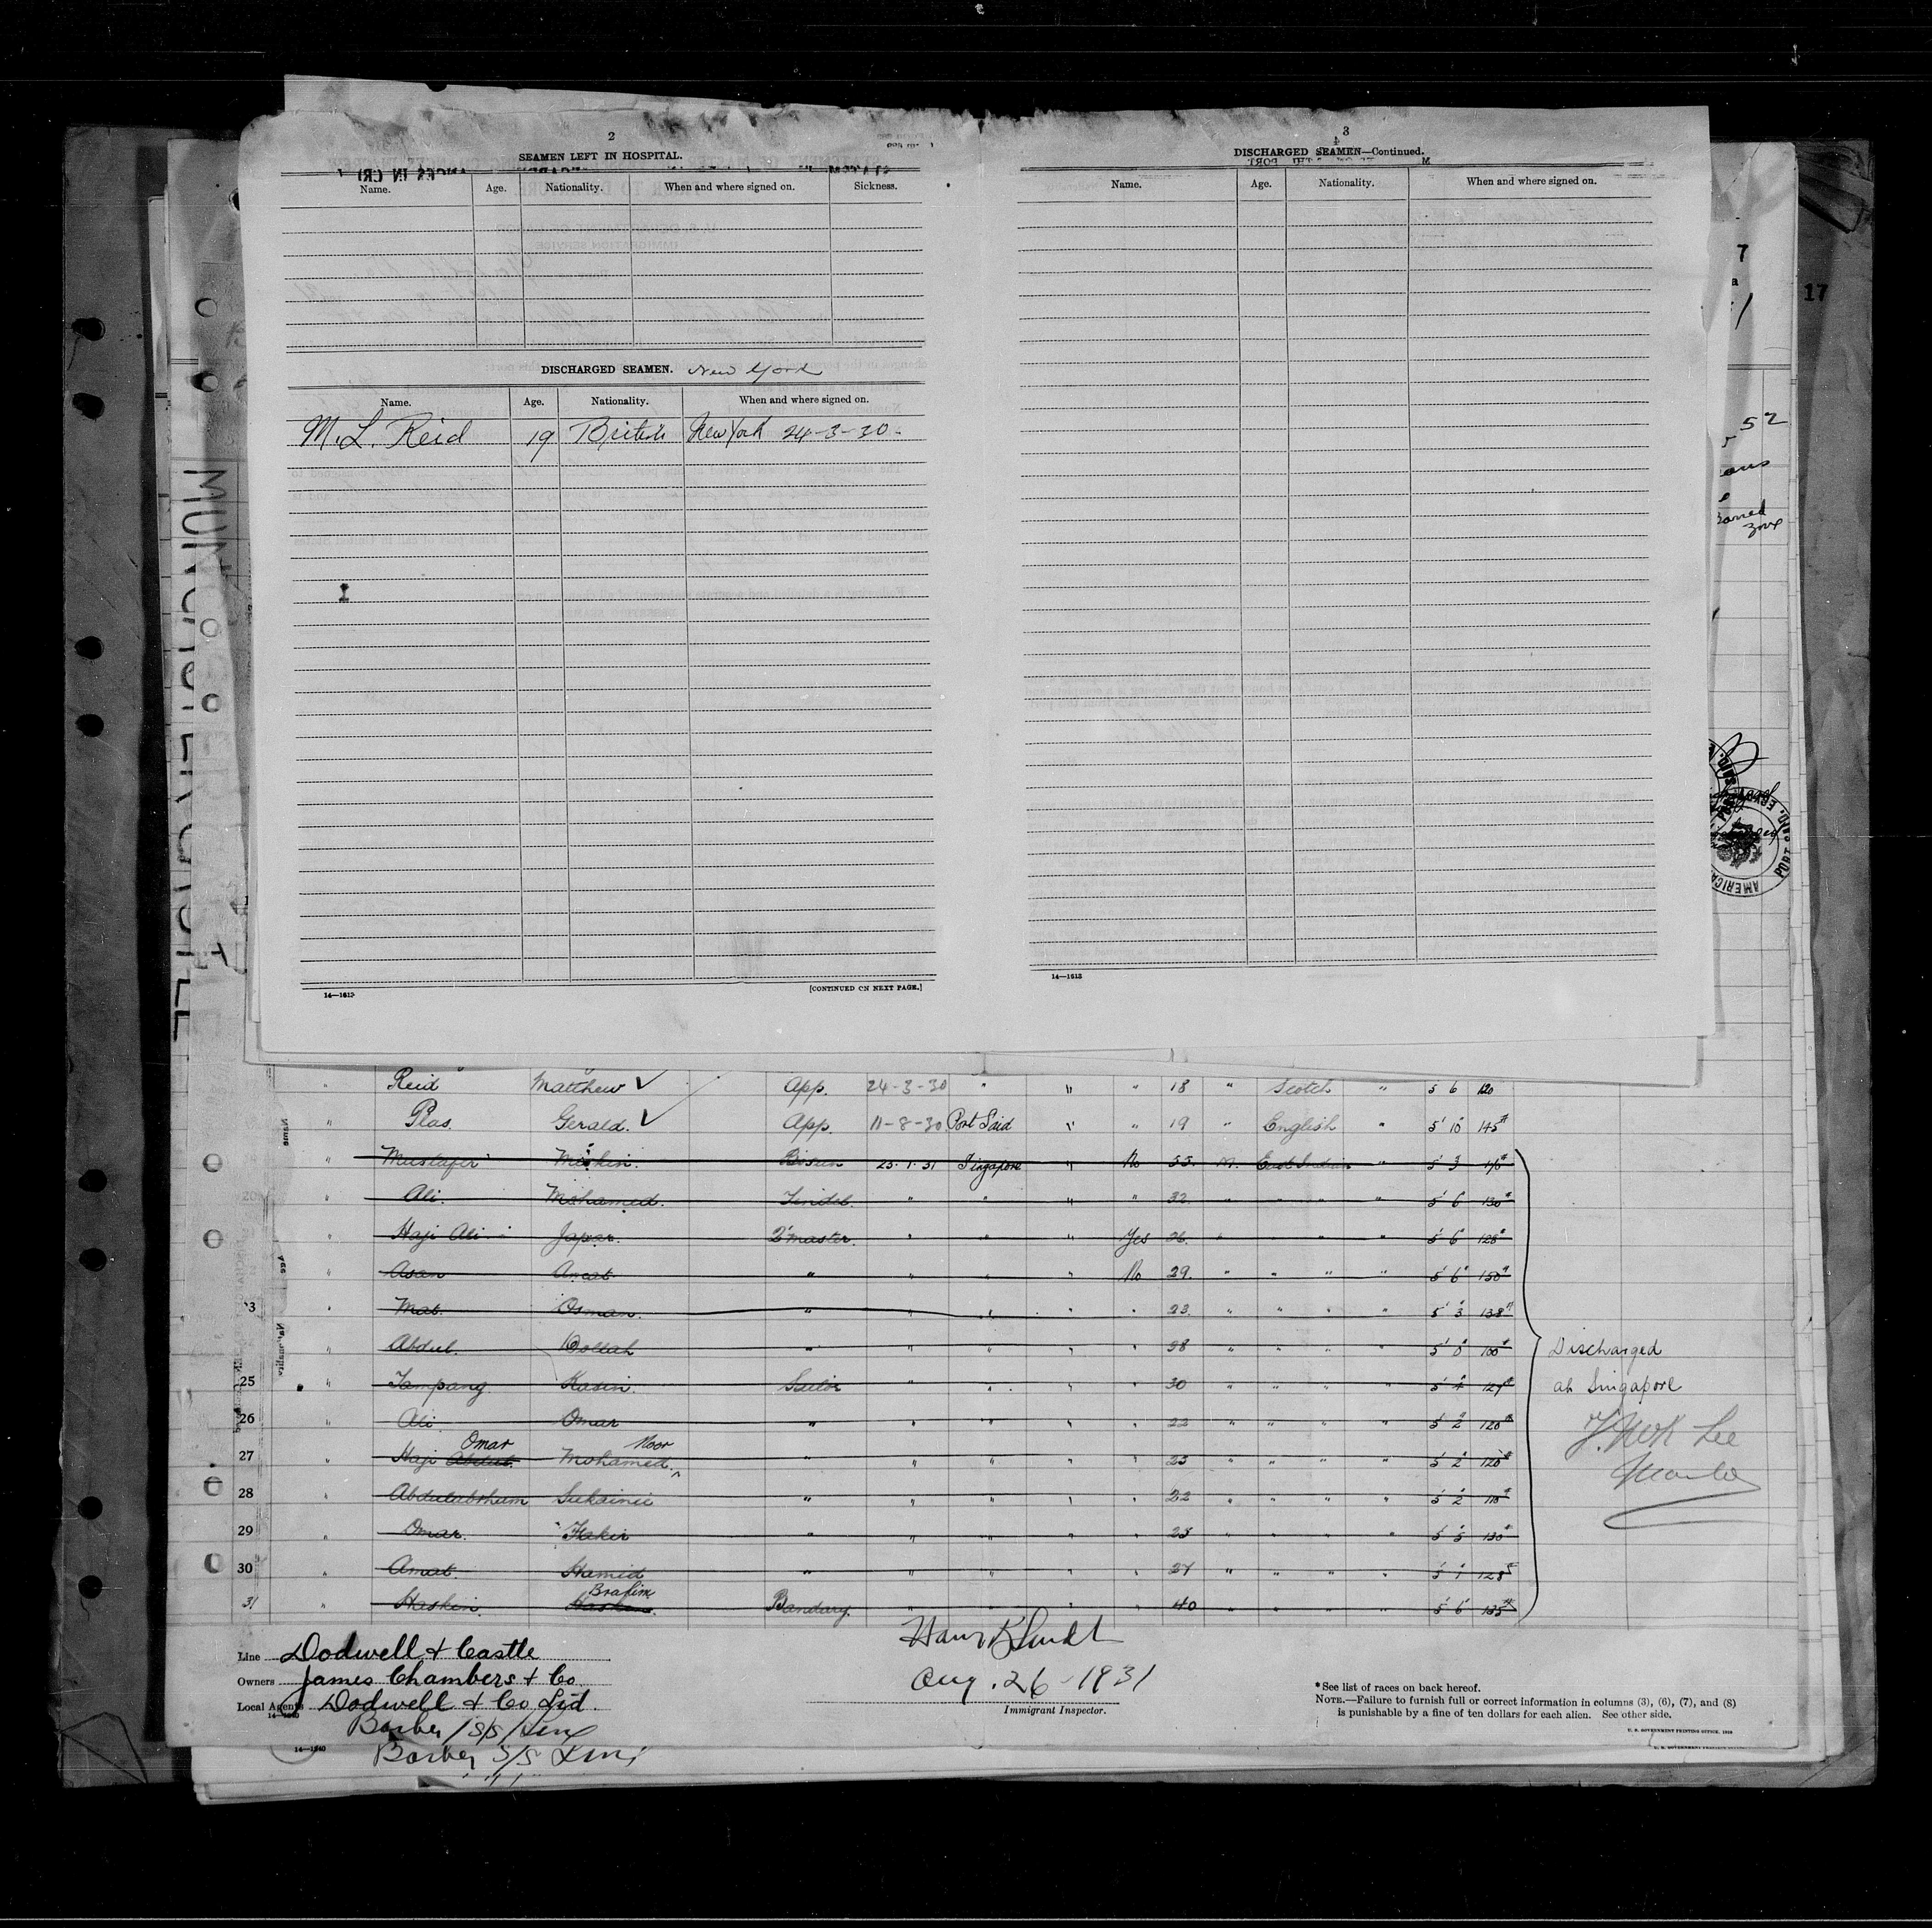 2
SEAMEN LEFT IN HOSPITAL.
Name. Age. Nationality. When and where signed on. Sickness.
DISCHARGED SEAMEN. New York
Name. Age. Nationality. When and where signed on.
M. L. Reid 19 British New York 24-3-30-
14—1613
[CONTINUED ON NEXT PAGE.]
3
DISCHARGED SEAMEN—Continued.
Name. Age. Nationality. When and where signed on.
14—1613
7
17
52
Barred
zone
" Reid Matthew ✓ App. 24-3-30 " " " 18 " Scotch " 5 6 120
" Plas. Gerald. ✓ App. 11-8-30. Port Said " " 19 " English " 5' 10" 145#
" Mustafer Miskin. Bosun 25.1.31 Singapore " No 55. M. East Indian " 5' 3"
" Ali. Mohamed. Tindel. " " " " 32. " " " " 5' 6" 130#
" Haji Ali Japar. Q'master. " " " Yes 26. " " " " 5' 6" 128#
" Asan Amat " " " " No 29. " " " " 5' 6" 150#
23 " Mat. Osman. " " " " " 23. " " " " 5' 3" 138#
" Abdul. " " " " " 38 " " " " 5' 0" 100#
25 " Tampang Kasin. Sailor " " " " 30 " " " " 5' 4" 127#
26 " Ali Omar " " " " " 22 " " " " 5' 2" 120#
27 " Haji Abdul. Omar Mohamed. Noor " " " " " 23 " " " " 5' 2" 120#
28 " Abdulabrhum Sukainie " " " " " 22 " " " " 5' 2" 110#
29 " Omar. Fakir " " " " " 23 " " " " 5' 5" 130#
30 " Amat. Hamid " " " " " 27 " " " " 5' 1" 128#
31 " Haskin. Haskin. Brahim Bandary. " " " " 40 " " " " 5' 6" 135#
Discharged
at Singapore
Lee
Master
Line Dodwell & Castle
Owners James Chambers & Co.
Local Agents Dodwell & Co Ltd.
14—1240
Barber S/S Line
14—1240
Barber S/S Line
Aug. 26-1931
Immigrant Inspector.
* See list of races on back hereof.
NOTE.—Failure to furnish full or correct information in columns (3), (6), (7), and (8)
is punishable by a fine of ten dollars for each alien. See other side.
U. S. GOVERNMENT PRINTING OFFICE.